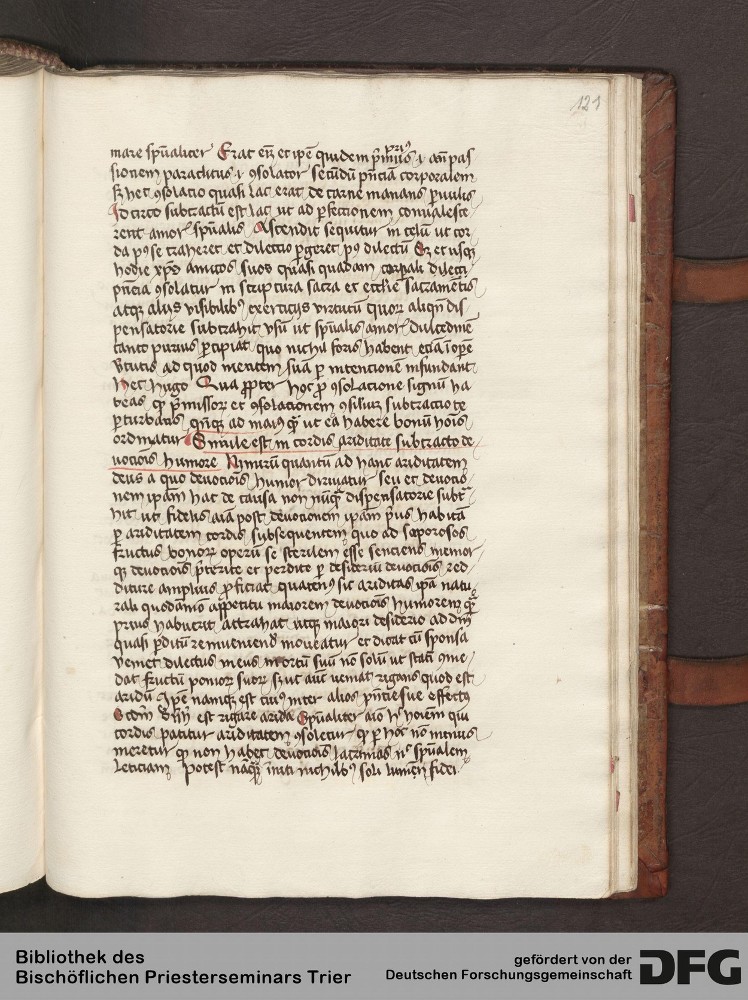 121
mare sp̄ualiter Erat em̄ et ip̄e quidem p̄mius
sionem paraclitus ꝯsolator secūdū p̄ncia corporalem
sꝫ hec ꝯsolacio quasi lac erat de carne manans ꝑuulis
Idcirco subtractū est lac ut ad ꝑfectionem conualesce
rent amor sp̄ualis Ascendit sequitur in celū ut cor
da pꝰ se traheret et dilectio ꝑgeret pꝰ dilectū Et usqꝫ
hodie xp̄s amicos suos quasi quadam corꝑali dilecti
p̄ncia ꝯsolatur in scriptura sacra et eccl̄ie sacramentis
atqꝫ alijs visibilibꝰ exercitijs virtutū quoꝝ aliqn̄ dis
pensatorie subtrahit vsū ut sp̄ualis amor dulcedinē
tanto purius ꝑcipiat quo nichil foris habent
v̄tutis ad quod mentem suā ꝑ intencionē infundant
hec hugo Qua ꝓpter hoc ꝓ ꝯsolacione signū ha
beas qꝫ p̄missoꝝ et ꝯsolacionem ꝯsilium subtractio te
ꝑturbatis ad maiꝰ ut ea habere bonū hoīs
ordinatur Simile est in cordis ariditate subtracto de
uocōis humore Nimirū quantū ad hanc ariditatem
deus a quo deuocōis humor diriuatur seu et deuocio
nem ip̄am hac de causa non nūqꝫ dispensatorie subt
hit ut fidelis aīa post deuocionem ip̄am p̄us habitā
ꝑ ariditatem cordis subsequentem quo ad saporosos
fructus bonoꝝ operū se sterilem esse senciens memor
qꝫ deuocōis p̄terite et perdite ꝑ desideriū deuocōis red
diture amplius ꝓficiat quatenꝰ sic ariditas ip̄a natu
rali quodāmō appetitu maiorem deuocōis humorem qꝫ
prius habuerit attrahat utqꝫ maiori desiderio ad dm̄
quasi ꝑditū re inueniend moueatur et dicat cū sponsa
veniet dilectus meus in ortū suū nō solū ut stati ꝯme
dat fructū pomoꝝ suoꝝ sꝫ ut aut̄ veniat rigans quod est
aridū Ip̄e namqꝫ est cuiꝰ inter alios p̄ncie sue effectꝰ
est rigare arida Sp̄ualiter aūt hoīem qui
cordis patitur ariditatem ꝯsoletur qꝫ ꝑ hoc nō minus
meretur qꝫ non habet deuocōis lacrimas nꝰ sp̄ualem
leticiam Potest nāqꝫ initi nichilꝰ soli lumen fidei
Bibliothek des
Bischöflichen Priesterseminars Trier
gefördert von der
Deutschen Forschungsgemeinschaft
DFG